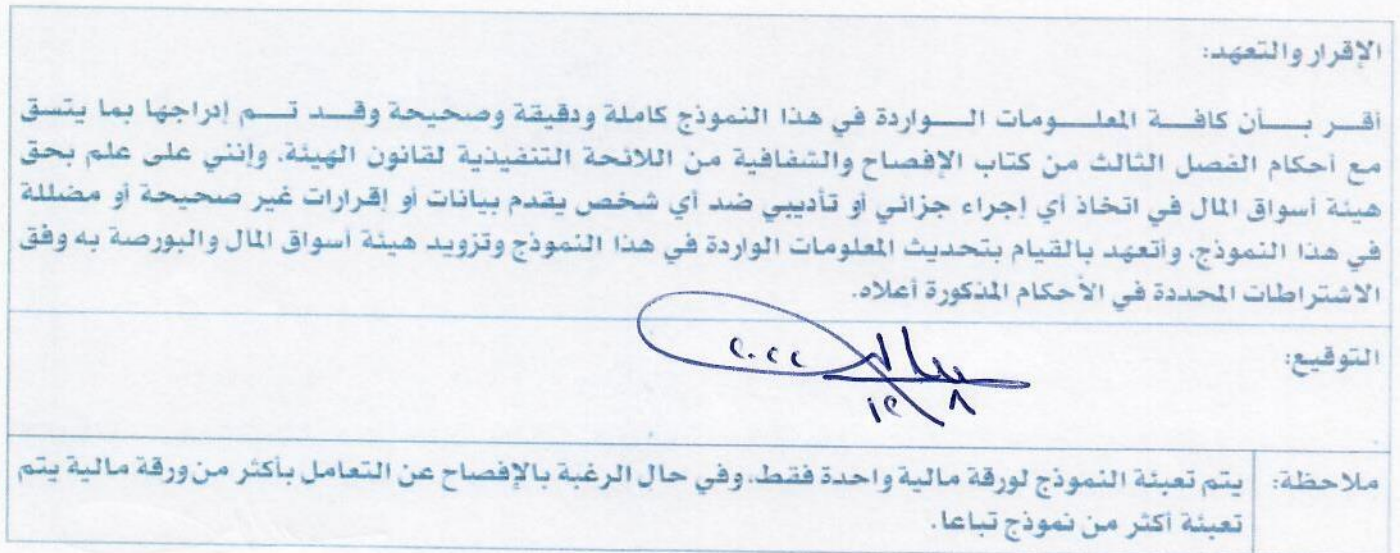 الإقرار والتعهد:
أقــر بــأن كافــة المعلــومات الــواردة في هذا النموذج كاملة ودقيقة وصحيحة وقــد تــم إدراجها بما يتسق
مع أحكام الفصل الثالث من كتاب الإفصاح والشفافية من اللائحة التنفيذية لقانون الهيئة، وإنني على علم بحق
هيئة أسواق المال في اتخاذ أي إجراء جزائي أو تأديبي ضد أي شخص يقدم بيانات أو إقرارات غير صحيحة أو مضللة
في هذا النموذج، وأتعهد بالقيام بتحديث المعلومات الواردة في هذا النموذج وتزويد هيئة أسواق المال والبورصة به وفق
الاشتراطات المحددة في الأحكام المذكورة أعلاه.
التوقيع:
٢٠٢٢
١٢ ٨
ملاحظة: يتم تعبئة النموذج لورقة مالية واحدة فقط، وفي حال الرغبة بالإفصاح عن التعامل بأكثر من ورقة مالية يتم
تعبئة أكثر من نموذج تباعا.